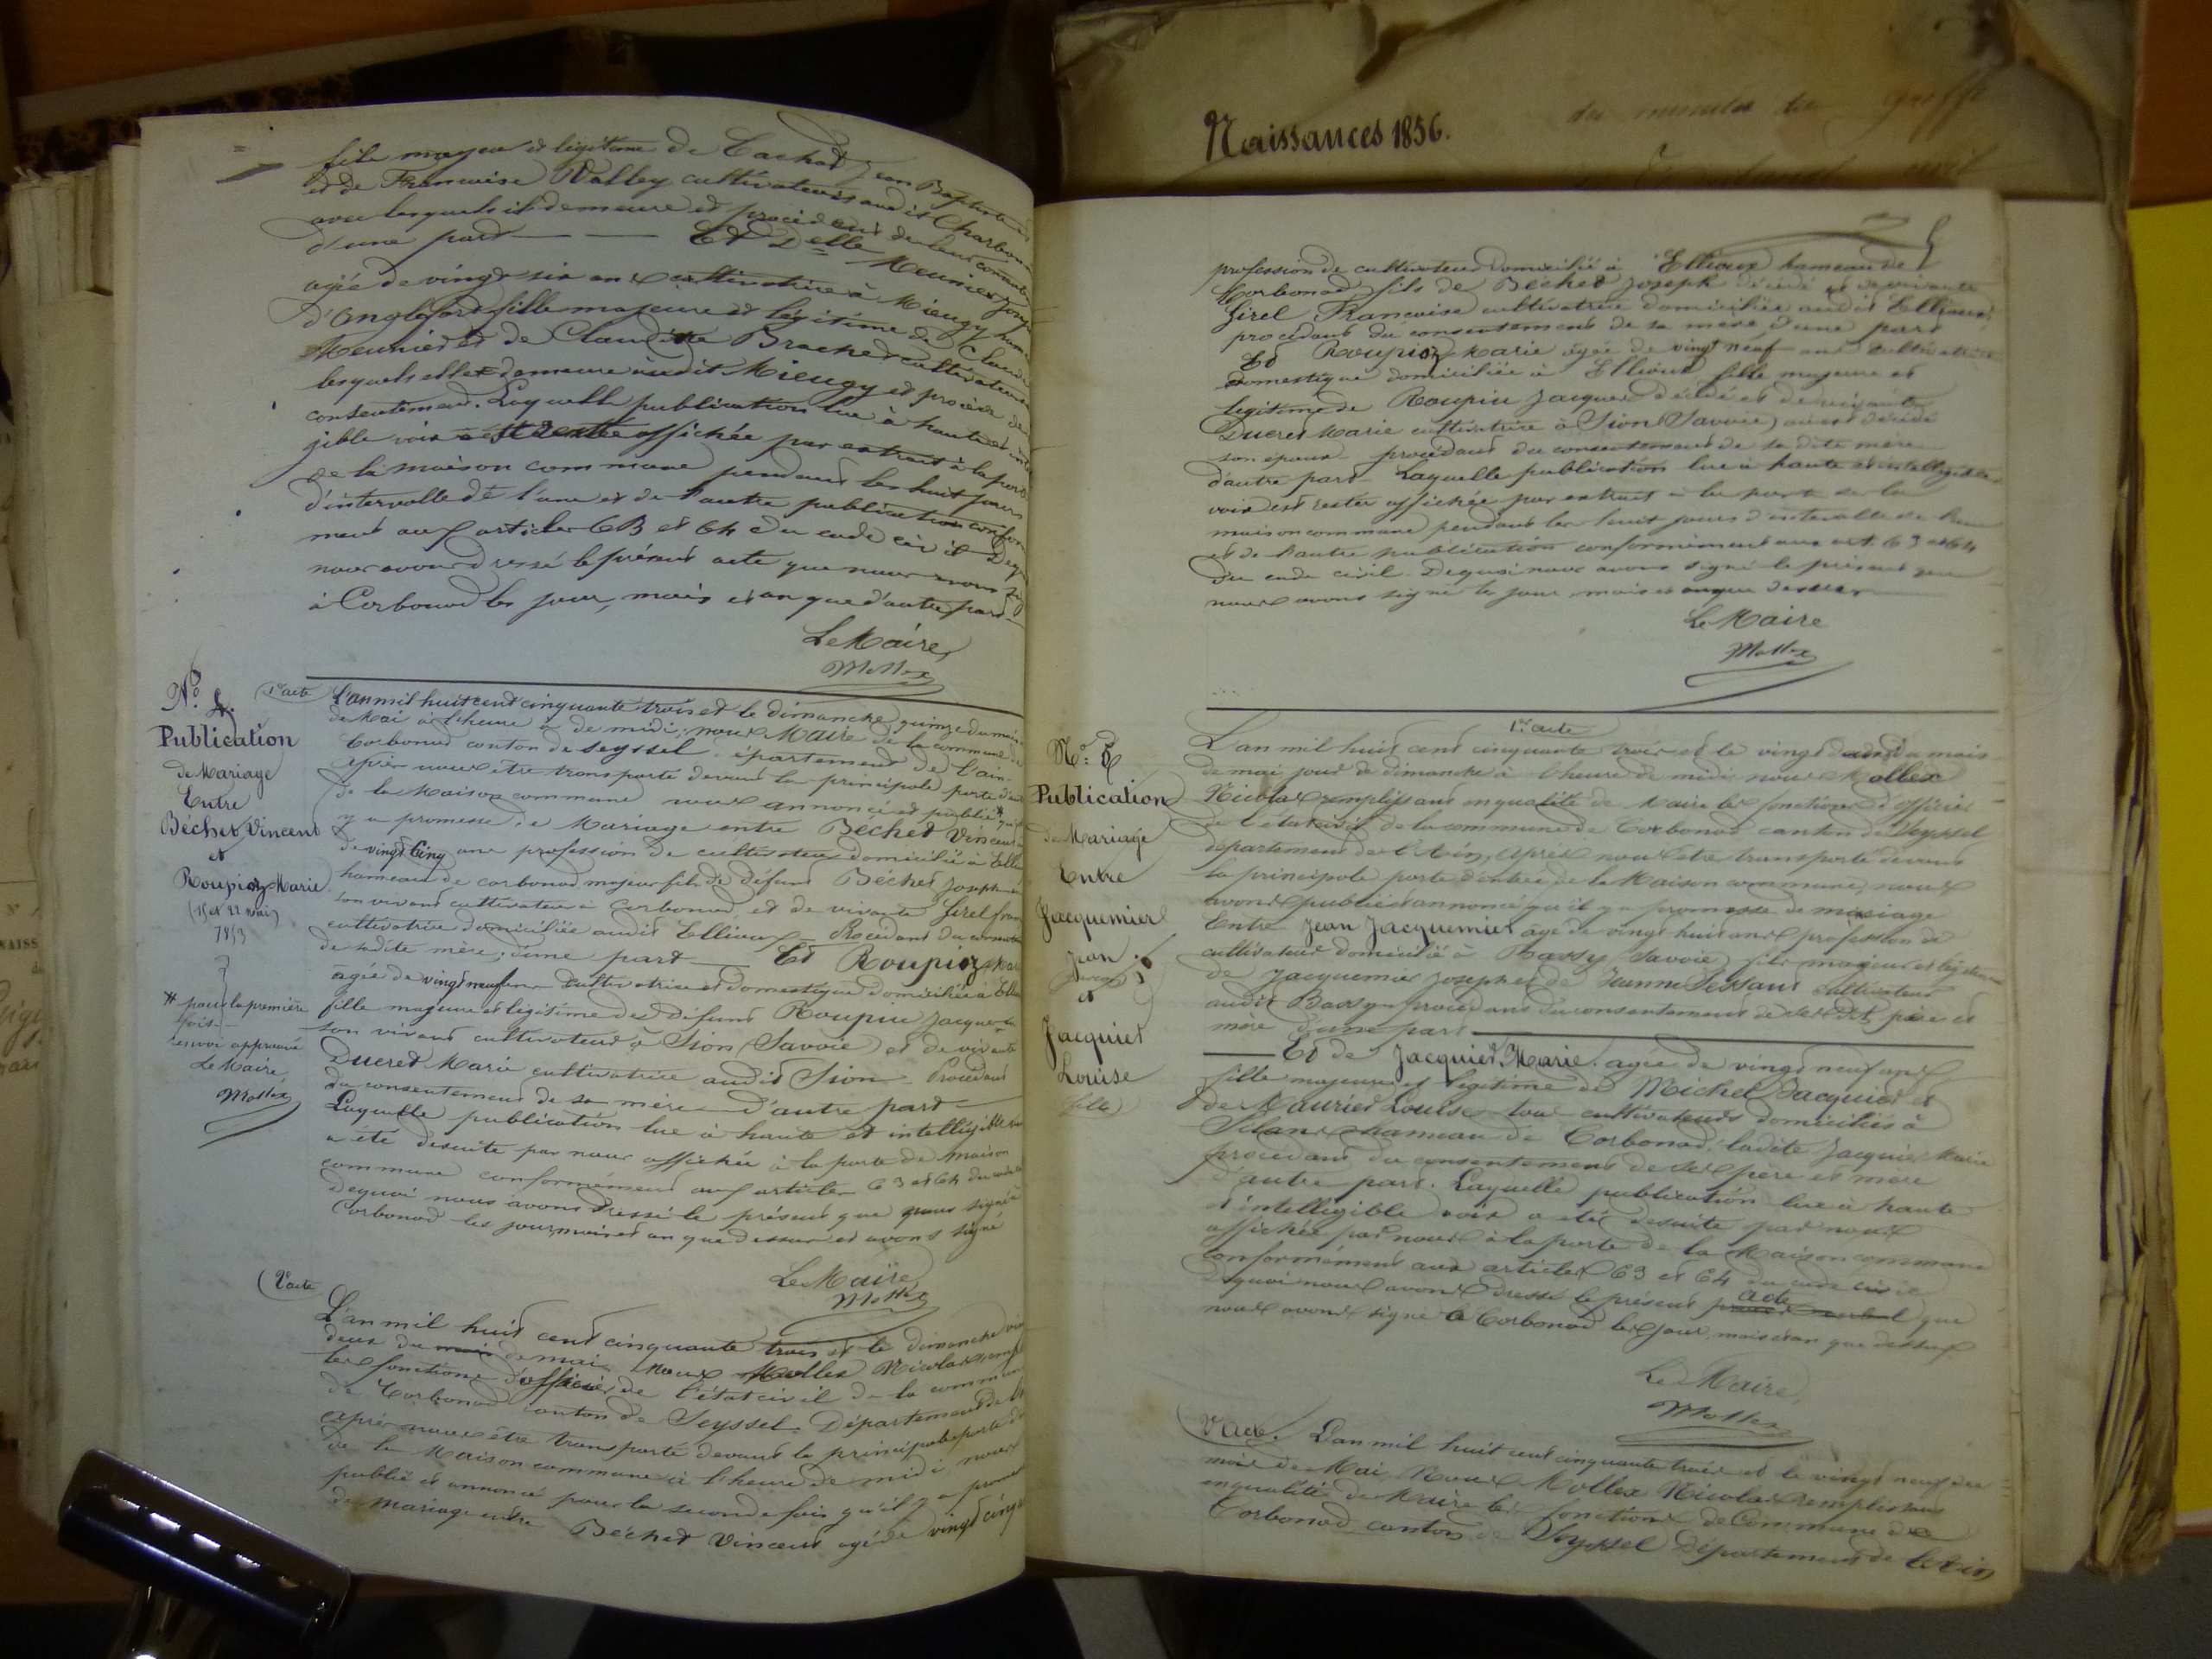 fils majeur et légitime de Cachat Jean Baptiste
et de Francoise Valley cultivateurs audit Charbon
avec lesquels il demeure et procédant de leur consente
d'une part — — Et Delle Meunier Jose
agée de vingt six ans cultivatrice à Mieugy ham
d'anglefort fille majeure et légitime de Claude
Meunier et de Claudine Brachet cultivateurs
lesquels elle demeure audit Mieugy et procède de
consentement. Laquelle publication lue à haute et inte
gible voix a été affichée par extrait à la porte
de la maison commune pendant les huit jours
d'intervalle de l'une et de l'autre publication confor
ment aux articles 63 et 64 du code civil Dequ
nous avons dressé le présent acte que nous avons
à Corbonod les jour, mois et an que d'autre part
Le Maire
Mollex
N.º 4.
Publication
de Mariage
Entre
Béchet Vincent
et
Roupioz Marie
(15 et 22 mai)
1853
# pour la première
fois
renvoi approuvé
Le Maire
Mollex
1er acte
L'an mil huit cent cinquante trois et le dimanche quinze du mois
de Mai à l'heure de midi, nous Maire de la commune de
Corbonod canton de Seyssel département de l'ain
après nous être transporté devant la principale porte d'en
de la Maison commune nous annoncé et publié # qu'il
y a promesse de Mariage entre Béchet Vincent
de vingt cinq ans profession de cultivateur domicilié à Elli
hameau de corbonod majeur fils de défunt Béchet Joseph
son vivant cultivateur à Corbonod et de vivante Girel fran
cultivatrice domiciliée audit Ellioux Procédant du consente
de sadite mère, d'une part — Et Roupioz Mar
agée de vingt neuf ans cultivatrice et domestique domiciliée à Elli
fille majeure et légitime de défunt Roupiu Jacques
son vivant cultivateur à Sion (Savoie) et de vivante
Ducret Marie cultivatrice audit Sion Procédant
du consentement de sa mère d'autre part
Laquelle publication lue à haute et intelligible
a été desuite par nous affichée à la porte de maison
commune conformément aux articles 63 et 64 du code
Dequoi nous avons dressé le présent que nous signé à
Corbonod les jour, mois et an que dessus et avons signé
Le Maire
Mollex
2e acte
L'an mil huit cent cinquante trois et le dimanche vin
deux du mois de mai, nous Mollex Nicolas rempl
les fonctions d'officier de l'état civil de la commun
de Corbonod canton de Seyssel Département de l'
après nous être transporté devant la principale porte d'
de la Maison commune à l'heure de midi nous
publié et annoncé pour la seconde fois qu'il y a promes
de mariage entre Béchet Vincent agé de vingt cinq
Naissances 1856.
des minutes du Greffe
profession de cultivateur domicilié à Ellioux hameau de
Corbonod fils de Béchet Joseph décédé et de vivante
Girel Francoise cultivatrice domiciliée audit Ellioux
procédant du consentement de sa mère d'une part
Et Roupioz Marie agée de vingt neuf ans cultivatrice
domestique domiciliée à Ellioux fille majeure et
légitime de Roupiu Jacques décédé et de vivante
Ducret Marie cultivatrice à Sion (Savoie) où est décédé
son époux procédant du consentement de sa dite mère
d'autre part Laquelle publication lue à haute et intelligible
voix est rester affichée par extrait à la porte de la
maison commune pendant les huit jours d'intervalle de l'une
et de l'autre publication conformément aux art. 63 et 64
du code civil. Dequoi nous avons signé le présent que
nous avons signé les jour, mois et an que dessus
Le Maire
Mollex
N.º 5
Publication
de Mariage
Entre
Jacquemier
Jean
et
Jacquier
Louise
(fille)
1er acte
L'an mil huit cent cinquante trois et le vingt deux du mois
de mai jour de dimanche à l'heure de midi nous Mollex
Nicolas remplissant en qualité de Maire les fonctions d'officier
de l'état civil de la commune de Corbonod canton de Seyssel
département de l'Ain, après nous être transporté devant
la principale porte d'entrée de la Maison commune, nous
avons publié et annoncé qu'il y a promesse de mariage
Entre Jean Jacquemier agé de vingt huit ans profession de
cultivateur domicilié à Bassy (Savoie) fils majeur et légitime
de Jacquemier Joseph et de Jeanne Dessaut cultivateurs
audit Bassy procédant du consentement de ses dits père et
mère d'une part
Et de Jacquier Marie agée de vingt neuf ans
fille majeure et légitime de Michel Jacquier et
de Maurier Louise tous cultivateurs domiciliés à
Silans hameau de Corbonod, ladite Jacquier Marie
procédant du consentement de ses père et mère
d'autre part. Laquelle publication lue à haute
et intelligible voix a été desuite par nous
affichée par nous à la porte de la Maison commune
conformément aux articles 63 et 64 du code civil
dequoi nous avons dressé le présent procès verbal acte que
nous avons signé à Corbonod les jour, mois et an que dessus
Le Maire
Mollex
2e Acte.
L'an mil huit cent cinquante trois et le vingt neuf du
mois de Mai Nous Mollex Nicolas remplissant
en qualité de Maire les fonctions de Commune de
Corbonod canton de Seyssel Département de l'Ain